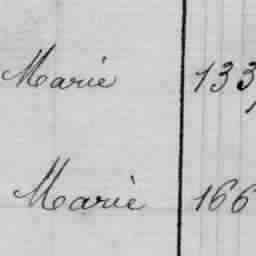 Marie 133
Marie 166